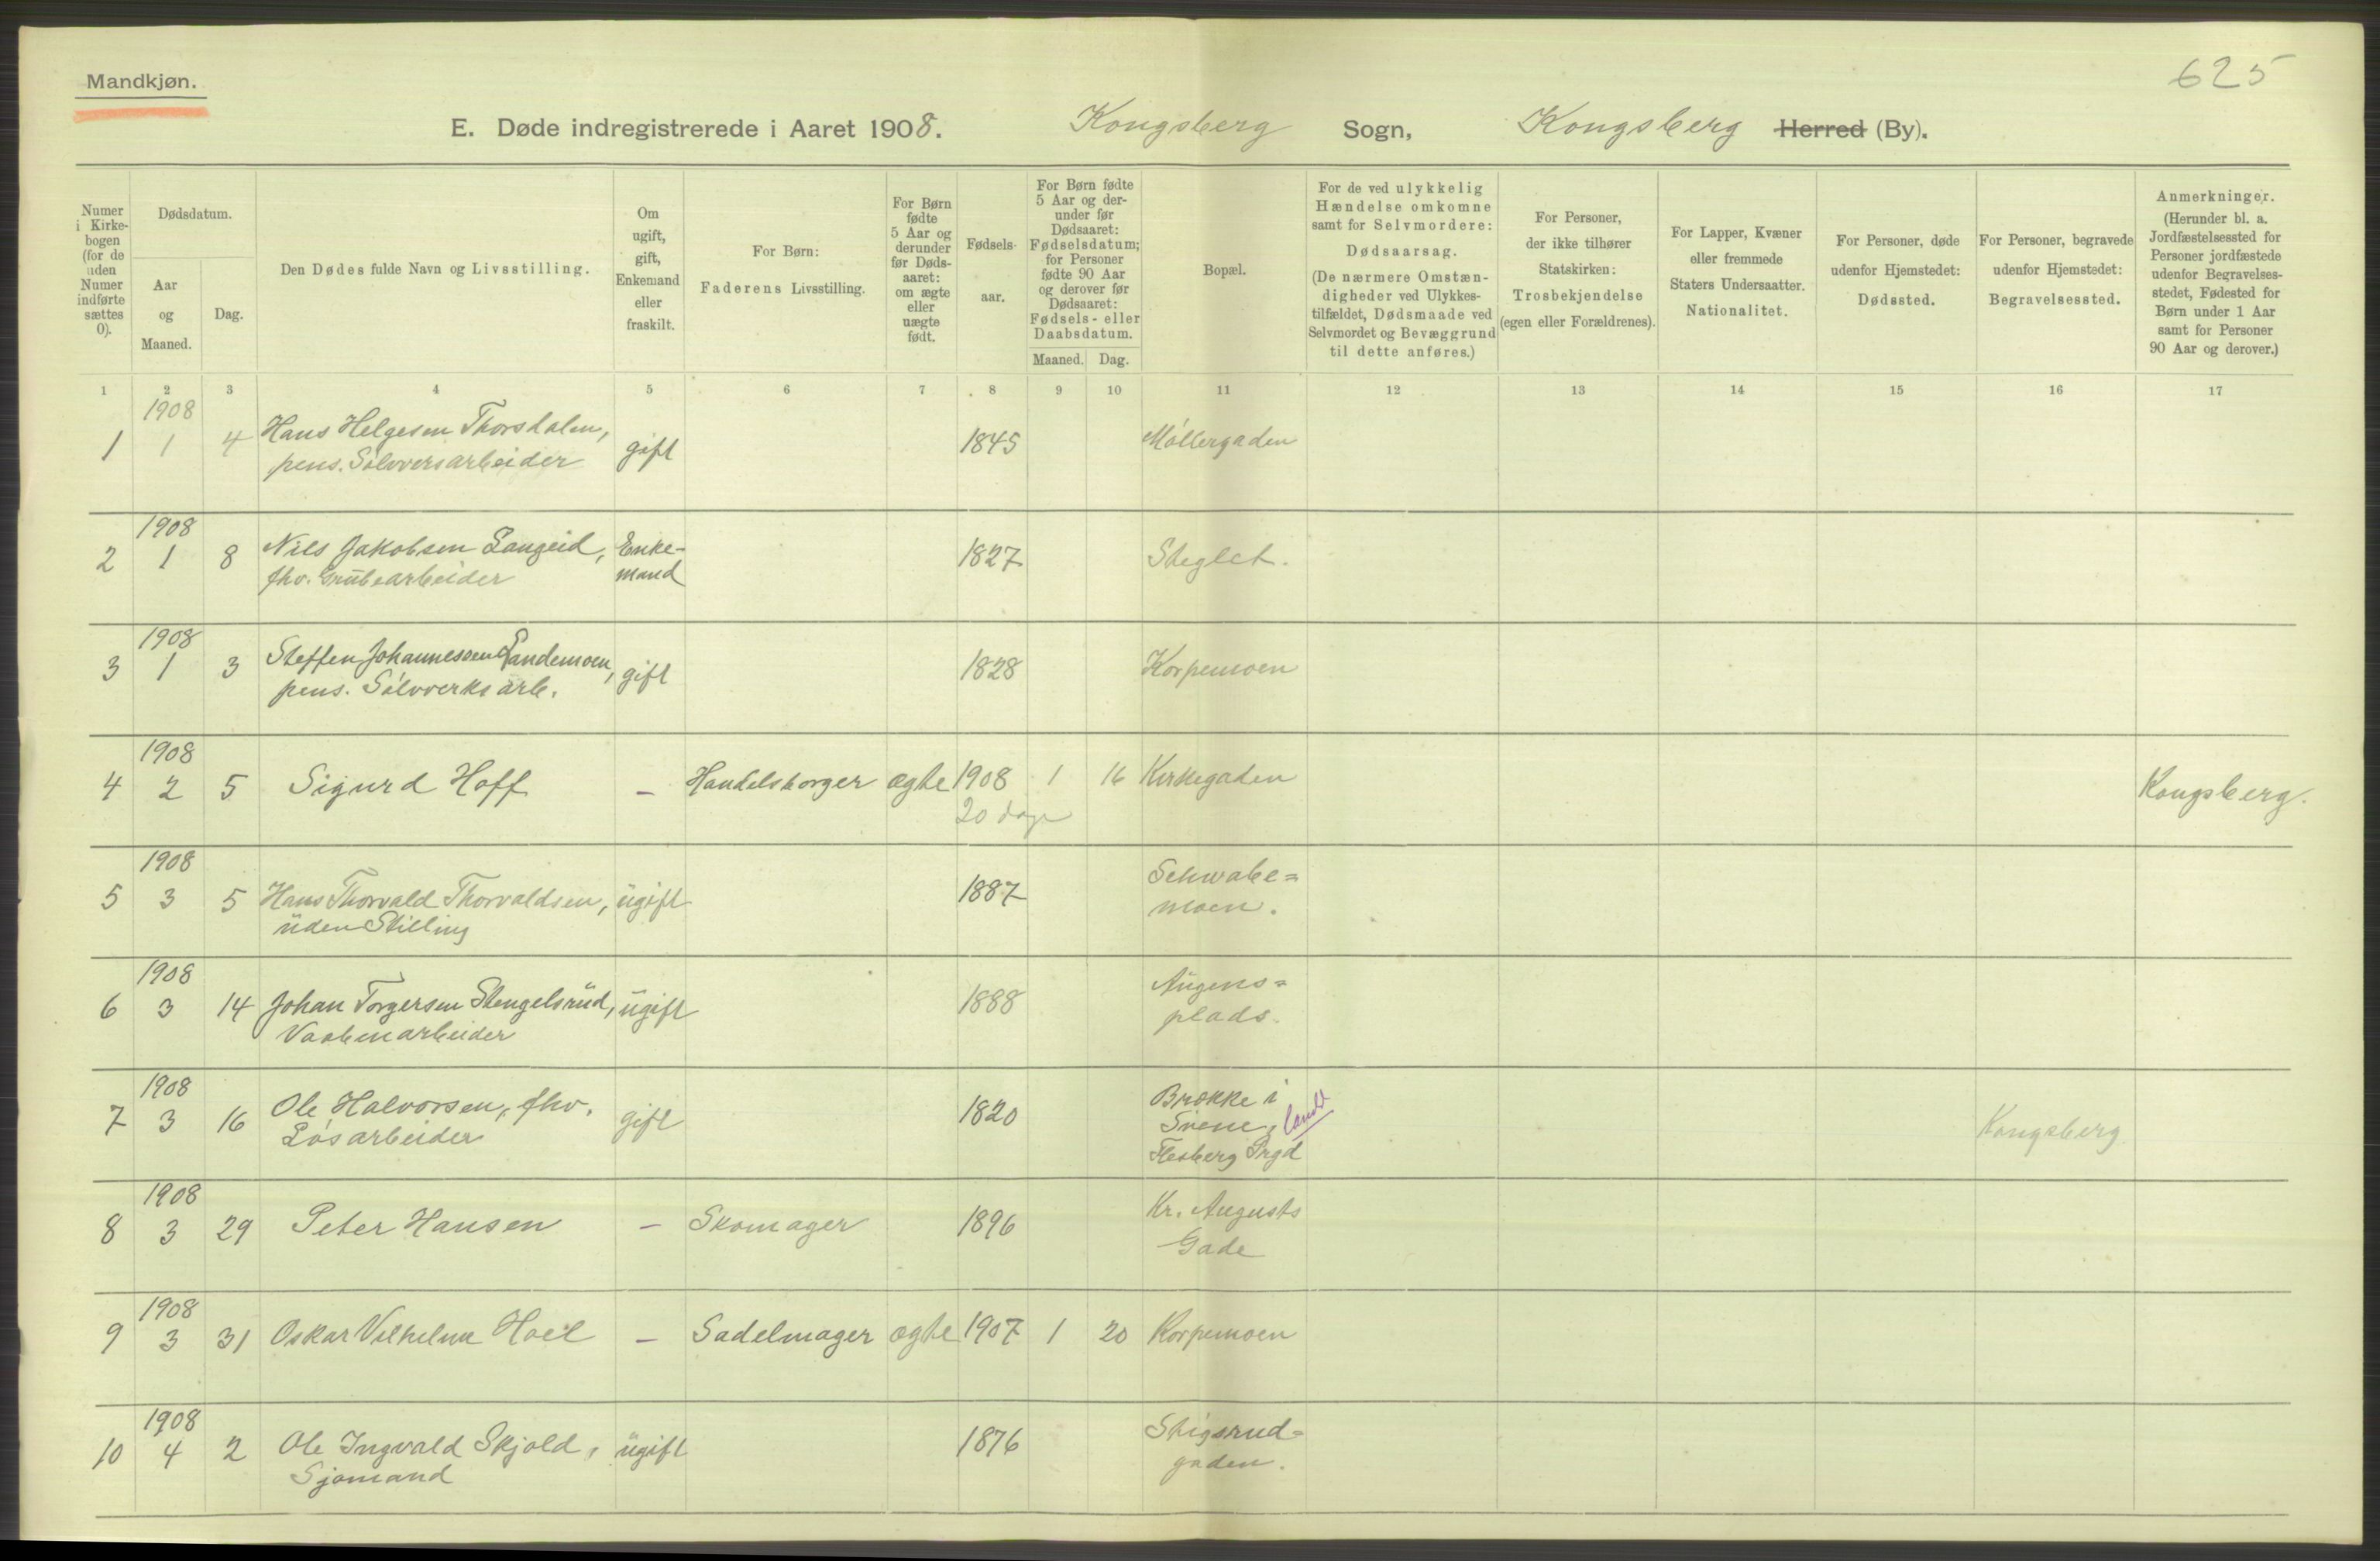 Mandkjøn.
625
E. Døde indregistrerede i Aaret 1908. Kongsberg Sogn, Kongsberg Herred (By).
Numer i Kirkebogen (for de uden Numer indførte sættes 0).
Dødsdatum.
Aar og Maaned.
Dag.
Den Dødes fulde Navn og Livsstilling.
Om ugift, gift, Enkemand eller fraskilt.
For Børn: Faderens Livsstilling.
For Børn fødte 5 Aar og derunder før Dødsaaret: om ægte eller uægte født.
Fødselsaar.
For Børn fødte 5 Aar og derunder før Dødsaaret: Fødselsdatum; for Personer fødte 90 Aar og derover før Dødsaaret: Fødsels- eller Daabsdatum.
Maaned. Dag.
Bopæl.
For de ved ulykkelig Hændelse omkomne samt for Selvmordere: Dødsaarsag. (De nærmere Omstændigheder ved Ulykkestilfældet, Dødsmaade ved Selvmordet og Bevæggrund til dette anføres.)
For Personer, der ikke tilhører Statskirken: Trosbekjendelse (egen eller Forældrenes).
For Lapper, Kvæner eller fremmede Staters Undersaatter. Nationalitet.
For Personer, døde udenfor Hjemstedet: Dødssted.
For Personer, begravede udenfor Hjemstedet: Begravelsessted.
Anmerkninger. (Herunder bl. a. Jordfæstelsessted for Personer jordfæstede udenfor Begravelsesstedet, Fødested for Børn under 1 Aar samt for Personer 90 Aar og derover.)
1 2 3 4 5 6 7 8 9 10 11 12 13 14 15 16 17
1908
1 1 4 Hans Helgesen Thorsdalen, gift 1845 Møllergaden
pens. Sølvversarbeider
1908
2 1 8 Nils Jakobsen Langeid, Enke- 1827 Steglet.
fhv. Grubearbeider mand
1908
3 1 3 Steffen Johannessen Sandemoen, gift 1828 Korpemoen
pens. Sølvverks arb.
1908
4 2 5 Sigurd Hoff – Handelsborger ægte 1908 1 16 Kirkegaden Kongsberg.
20 dage
1908
5 3 5 Hans Thorvald Thorvaldsen, ugift 1887 Schwabe=
uden Stilling moen.
1908
6 3 14 Johan Torgersen Stengelsrud, ugift 1888 Augens=
Vaabenarbeider plads.
1908
7 3 16 Ole Halvorsen, fhv. gift 1820 Brække i Kongsberg
Løsarbeider Svene,
Flesberg Prgd
1908
8 3 29 Peter Hansen – Skomager 1896 Kr. Augusts
Gade
1908
9 3 31 Oskar Vilhelm Hoel – Sadelmager ægte 1907 1 20 Korpemoen
1908
10 4 2 Ole Ingvald Skjold, ugift 1876 Stigsrud=
Sjømand gaden.